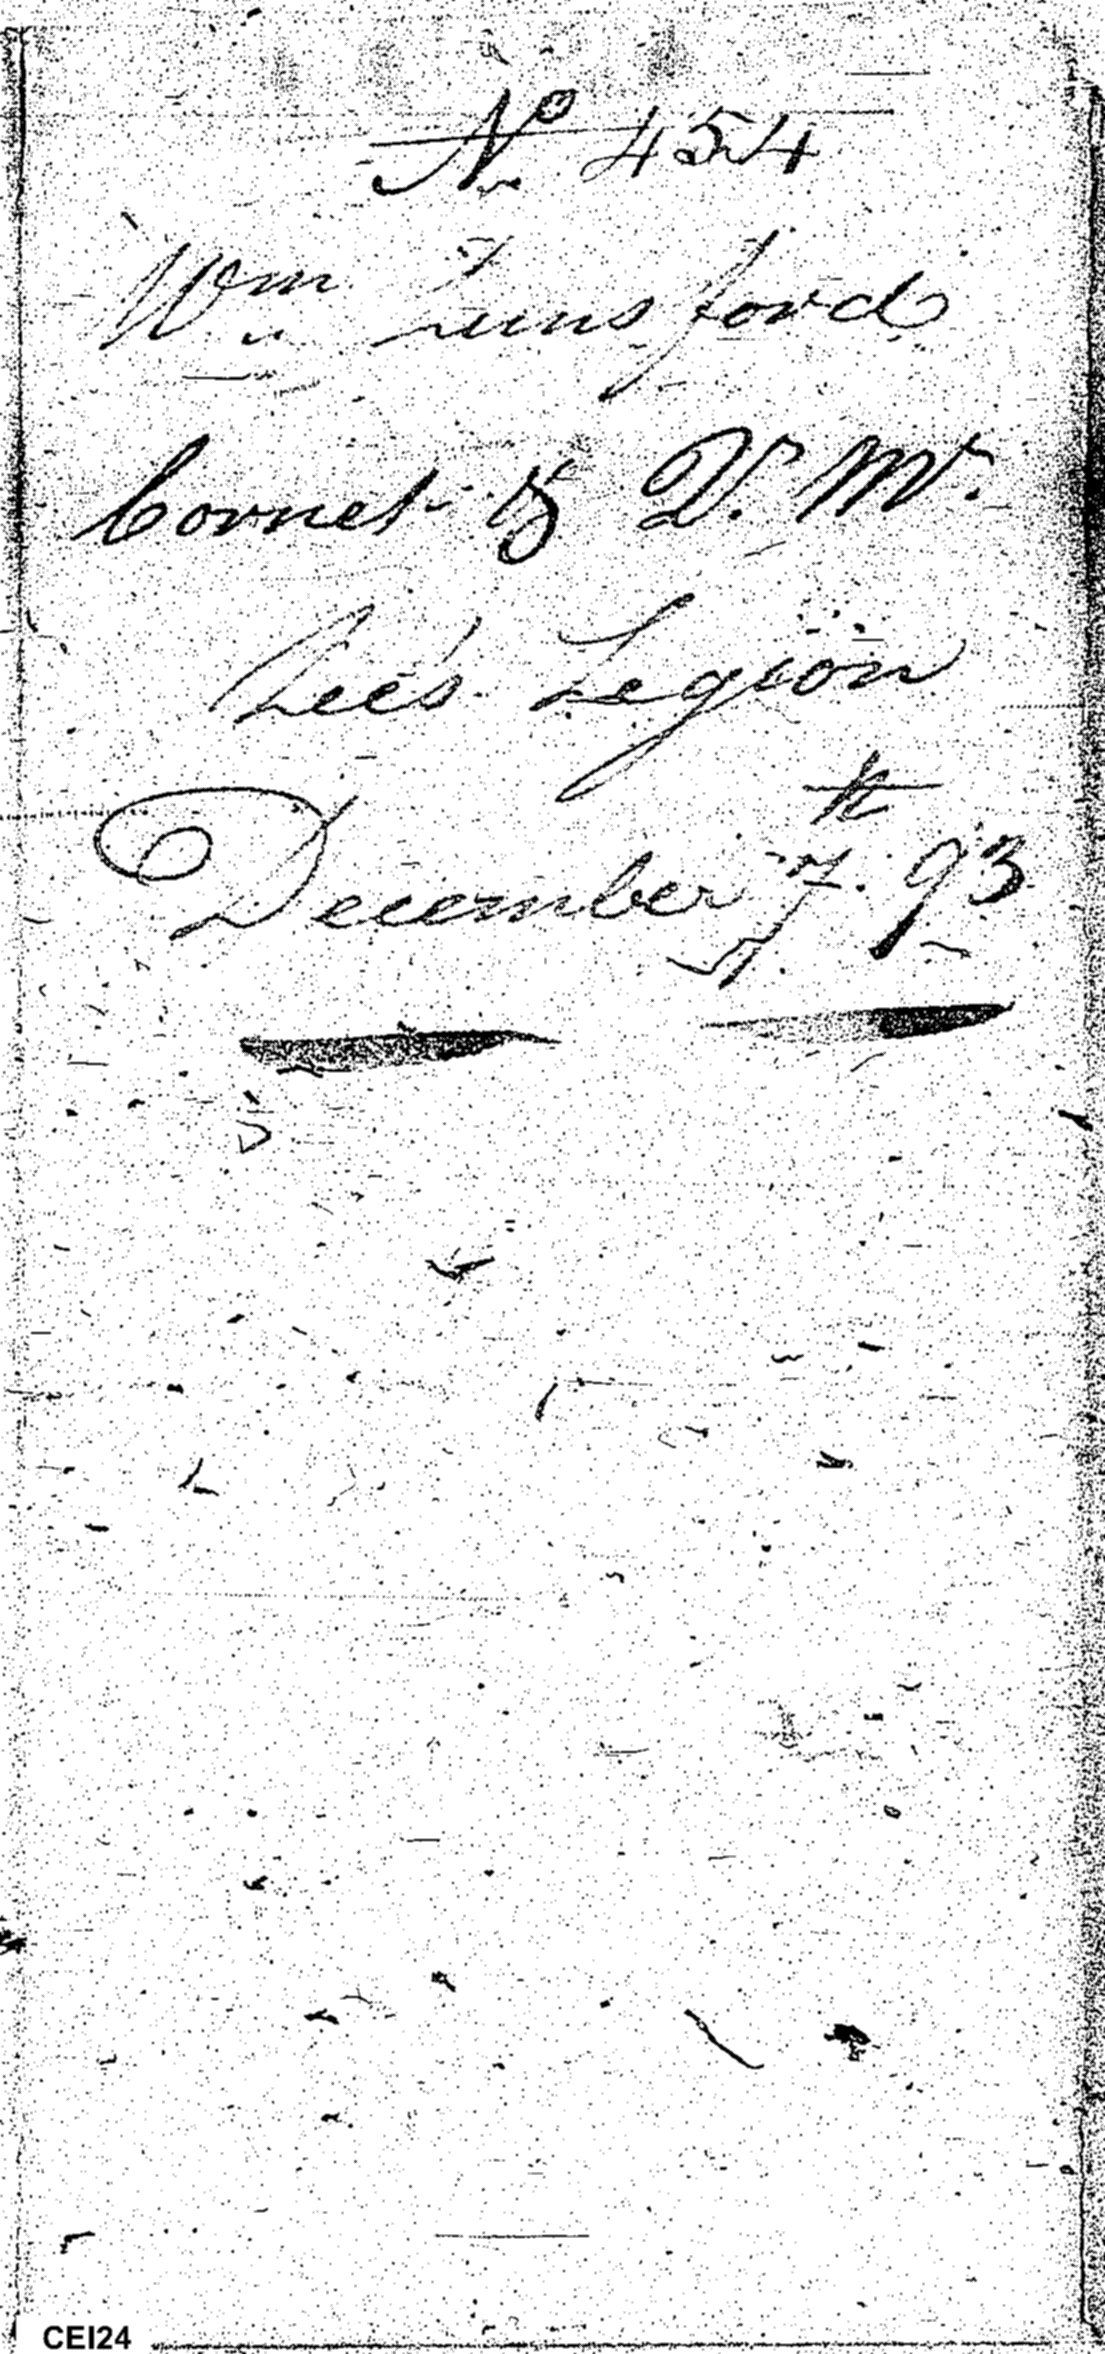 No 454
Wm Lunsford
Cornet & Q. Mr.
Lee's Legion
December 7th. 93
CEI24